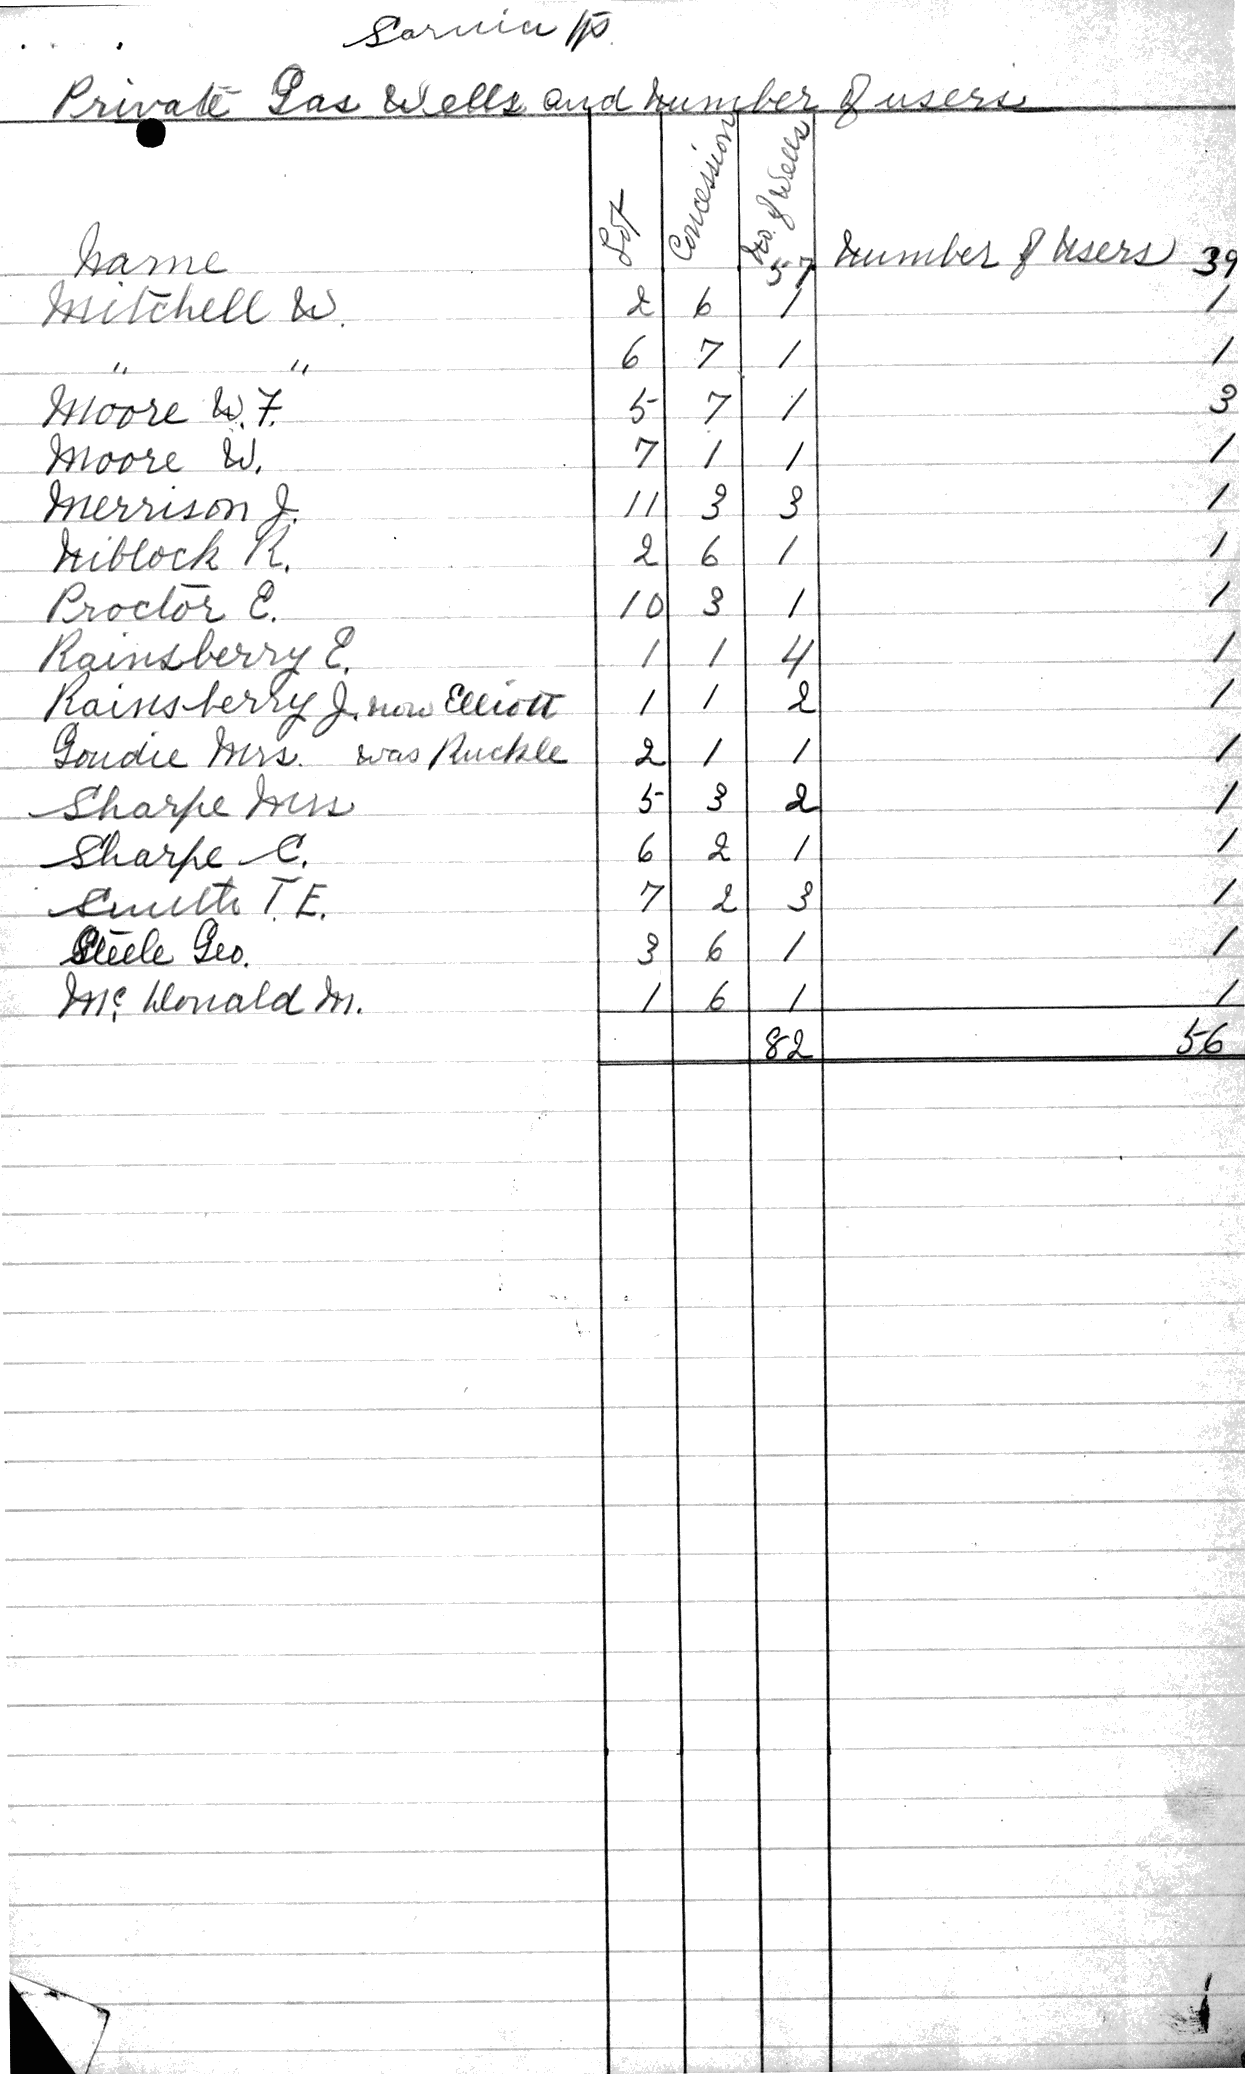 Sarnia Tp.
Private Gas Wells and Number of users
Name Lot Concession No. of Wells Number of Users
57 39
Mitchell W. 2 6 1 1
" " 6 7 1 1
Moore W.F. 5 7 1 3
Moore W. 7 1 1 1
Merrison J. 11 3 3 1
Niblock R. 2 6 1 1
Proctor E. 10 3 1 1
Rainsberry E. 1 1 4 1
Rainsberry J. now Elliott 1 1 2 1
Goudie Mrs. was Ruckle 2 1 1 1
Sharpe Mrs 5 3 2 1
Sharpe C. 6 2 1 1
Smith T.E. 7 2 3 1
Steele Geo. 3 6 1 1
Mc Donald M. 1 6 1 1
82 56